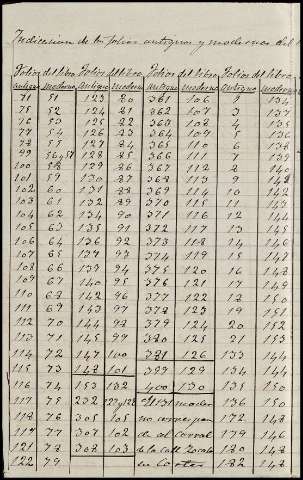 Indicesion de los folios antiguos y modernos del
Folios del libro Folios del libro Folios del libro Folios del libro
antiguo moderno antiguo moderno antiguo moderno antiguo moderno
75 51 123 80 361 106 134
76 52 124 81 362 107 3 137
125 82 363 108 4 135
77 54 126 83 364 109 5 136
78 55 127 84 365 110 6 138
99 56 y 57 128 85 366 111 7 139
100 58 129 86 367 112 8 140
101 59 130 87 368 113 9 148
102 60 131 88 369 114 10 142
103 61 132 89 370 115 11 143
104 62 134 90 371 116 12 144
105 63 135 91 372 117 13 145
106 64 136 92 373 118 14 146
107 65 137 93 374 119 15 147
108 66 139 94 375 120 16 148
109 67 140 95 376 121 17 149
110 68 142 96 377 122 18 150
111 69 143 97 378 123 19 151
112 70 144 98 379 124 20 152
113 71 145 99 380 125 21 153
114 72 147 100 381 126 133 144
115 73 148 101 399 129 134 144
116 74 153 132 400 130 135 150
117 75 232 127 y 128 el 131 moder 136 150
118 76 305 105 no corresp 172 148
119 77 307 102 de al Corral 179 146
121 78 308 103 de la calle Zocato 180 148
122 79 en Cortes 182 148